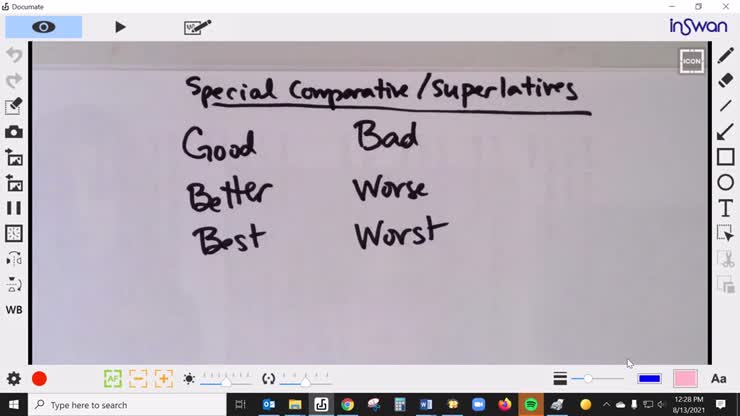 Documate
inswan
ICON
Special Comparative/Superlatives
Good Bad
Better Worse
Best Worst
T
WB
AF
Aa
Type here to search
12:28 PM
8/13/2021